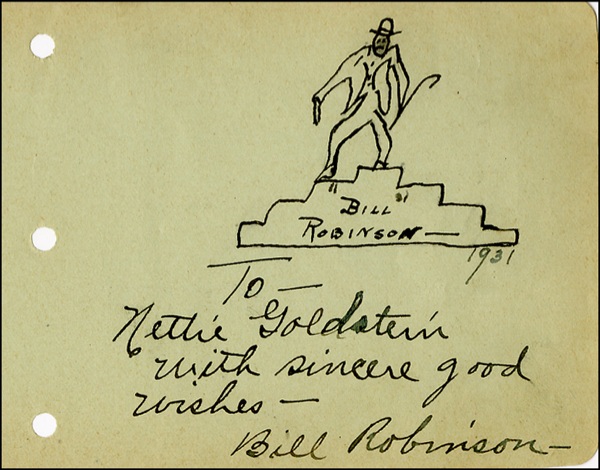 "BILL"
ROBINSON—
1931
To—
Nettie Goldstein
with sincere good
wishes—
Bill Robinson—